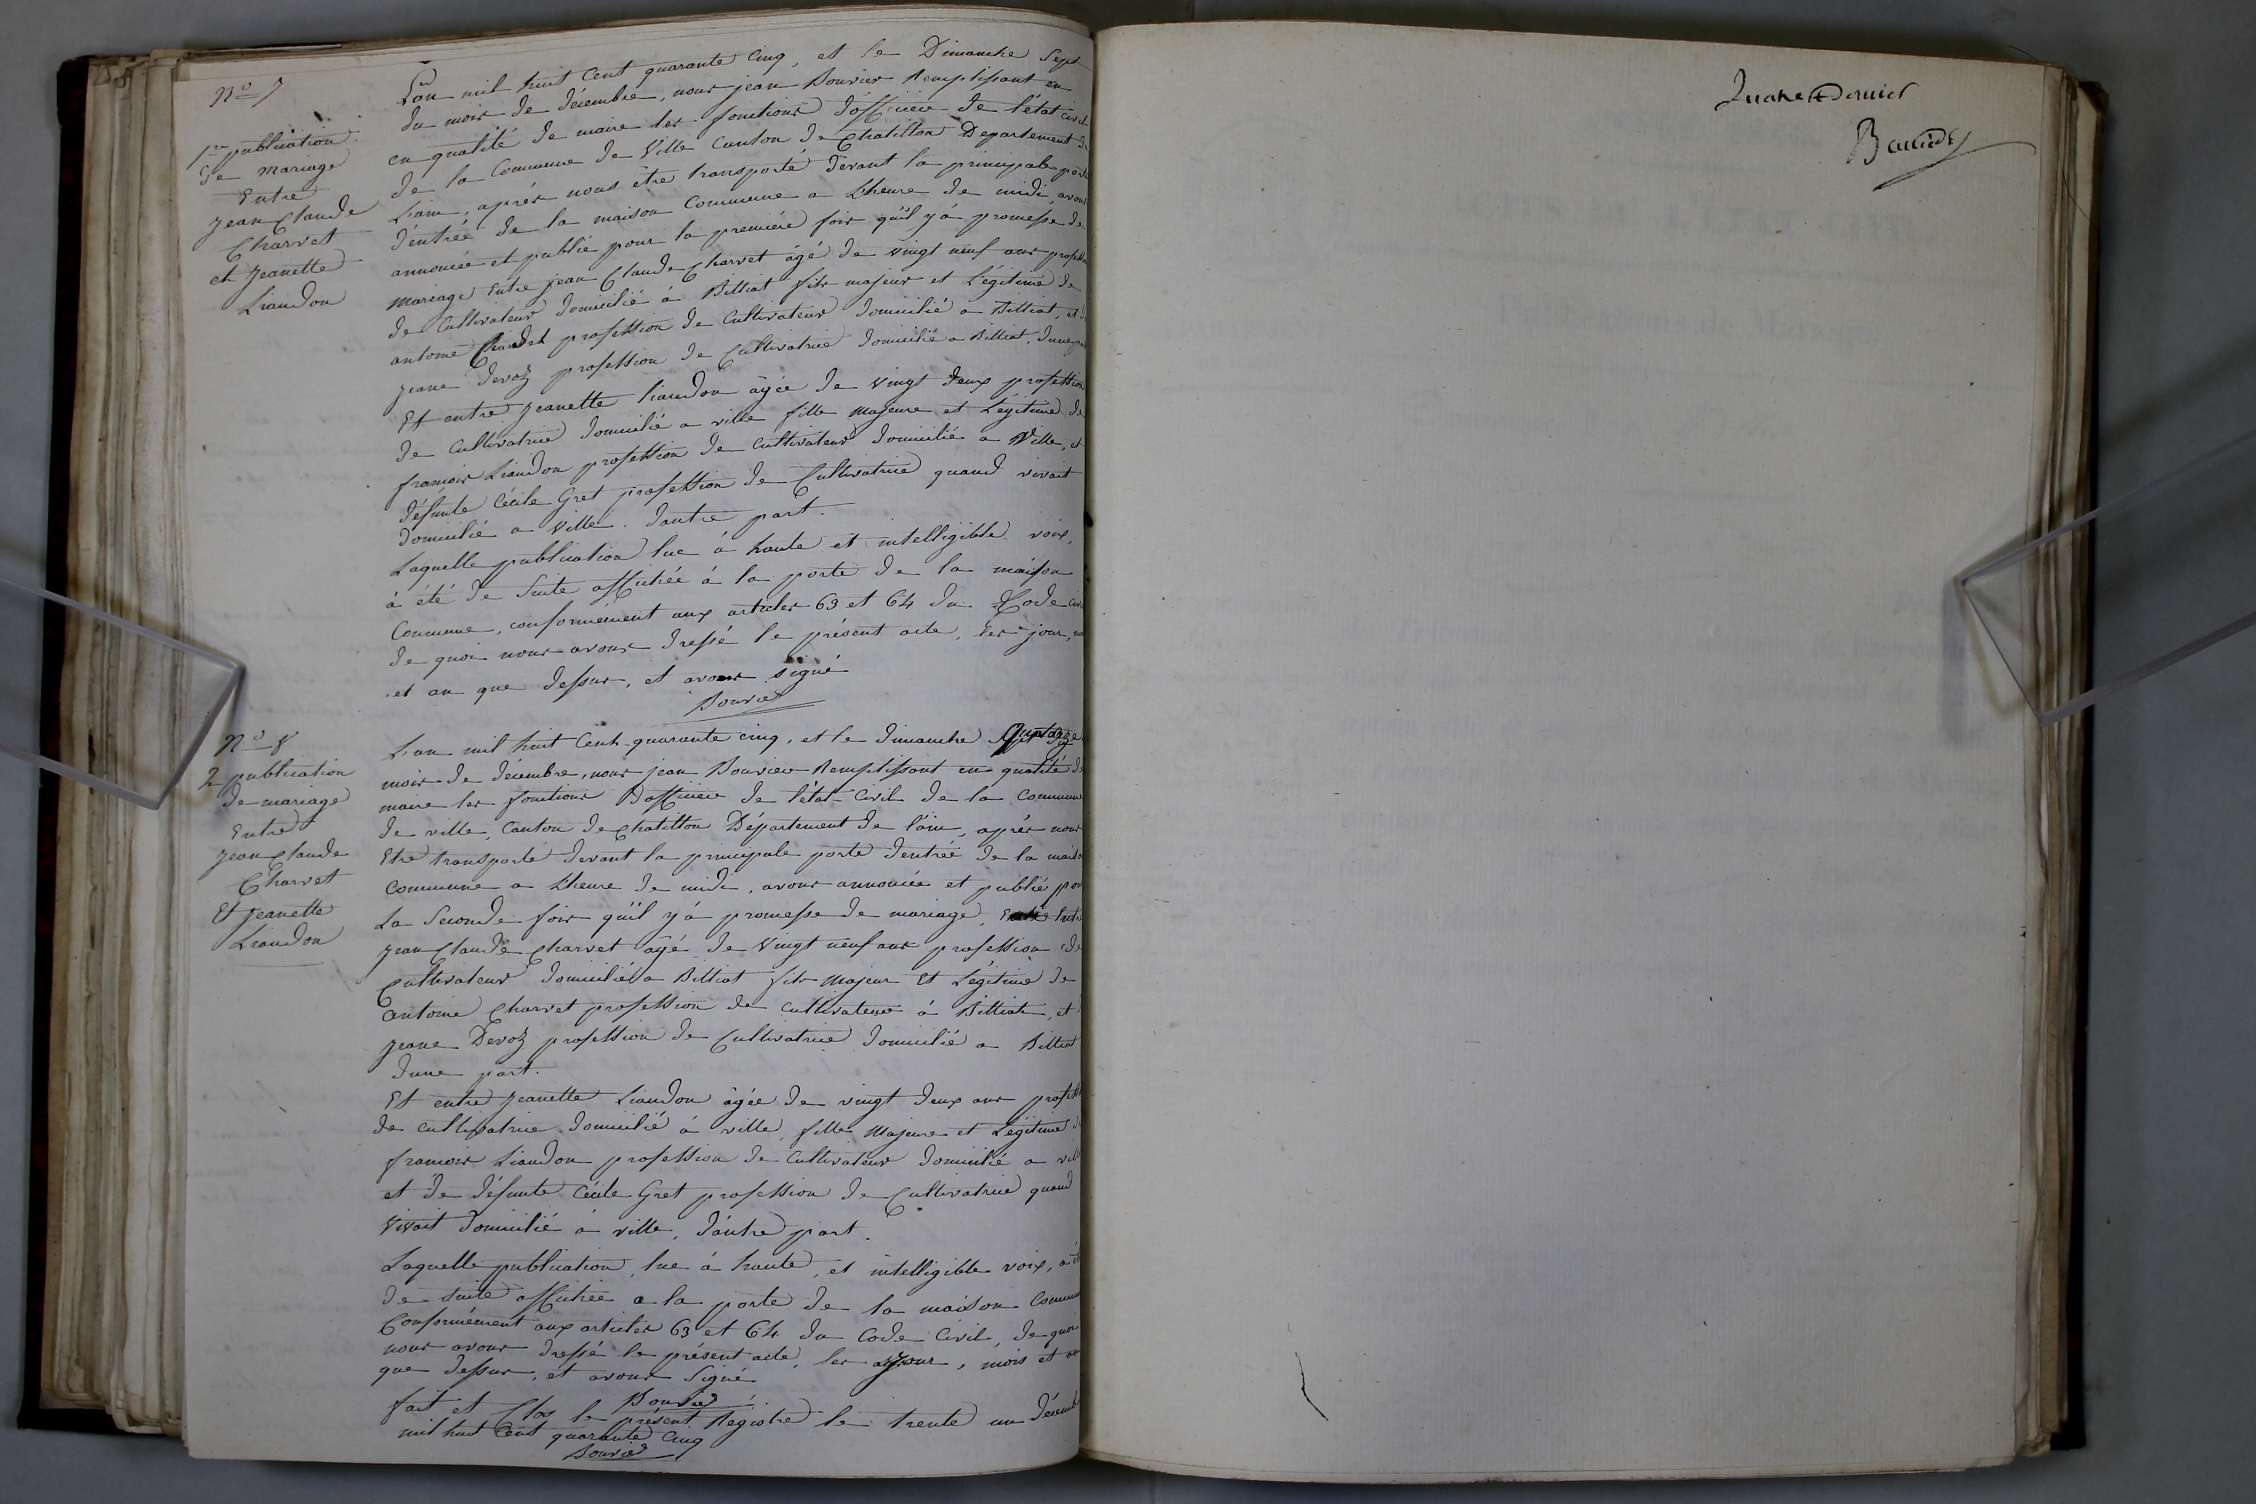 N° 7
1re publication
de mariage
Entre
jean Claude
Charvet
et jeanette
Liaudon
L'an mil huit Cent quarante Cinq, et le Dimanche Sept
du mois de décembre, nous jean Bouvier Remplissant en
en qualité de maire les fonctions d'officier de l'état civil
de la Commune de Ville Canton de Chatillon Departement de
L'ain, après nous être transporté devant la principale porte
d'entrée de la maison Commune a L'heure de midi, avons
annoncée et publié pour la première fois qu'il y á promesse de
mariage Entre jean Claude Charvet âgé de vingt neuf ans profession
de Cultivateur domicilié á Billiat fils majeur et Légitime de
antoine Charvet profession de Cultivateur domicilié a Billiat, et de
jeane Devoz profession de Cultivatrice domicilié a Billiat, dune part
Et entre jeanette Liaudon âgée de vingt deux profession
de Cultivatrice domicilié a ville fille majeure et Légitime de
françois Liaudon profession de Cultivateur domicilié a Ville, et
défunte Cécile Gret profession de Cultivatrice quand vivait
domicilié a Ville. dautre part.
Laquelle publication lue á haute et intelligible voix,
á été de suite affichée á la porte de la maison
Commune, conformément aux articles 63 et 64 du Code civil
de quoi nous avons dressé le présent acte, les jour,
et an que dessus, et avons signé
Bouvier
N° 8
2e publication
de mariage
Entre
jean Claude
Charvet
Et jeanette
Liaudon
L'an mil huit Cent quarante cinq, et le dimanche Quatorze
mois de décembre, nous jean Bouvier Remplissant en qualité de
maire les fonctions D'officier de l'état Civil de la Commune
de ville, Canton de Chatillon Département de l'ain, après nous
Etre transporté devant la principale porte d'entrée de la maison
Commune a L'heure de midi, avons annoncée et publié pour
La Seconde fois qu'il y á promesse de mariage, Entre
jean Claude Charvet âgé de Vingt neuf ans profession de
Cultivateur domicilié a Billiat fils majeur Et Légitime de
antoine Charvet profession de cultivateur á Billiat, et
jeane Devoz profession de Cultivatrice domicilié a Billiat
dune part.
Et entre jeanette Liaudon âgée de vingt deux ans profession
de cultivatrice domicilié á ville, fille majeure et Légitime de
françois Liaudon profession de Cultivateur domicilié a ville
et de défunte Cécile Gret profession de Cultivatrice quand
Vivait domicilié á ville, d'autre part.
Laquelle publication, lue á haute, et intelligible voix, a été
de suite affichée a la porte de la maison Commune
Conformément aux articles 63 et 64 du Code Civil, de quoi
nous avons dressé le présent acte, les jour, mois et an
que dessus, et avons Signé
Bouvier
fait et Clos le présent Registre le trente un décembre
mil huit Cent quarante Cinq
Bouvier